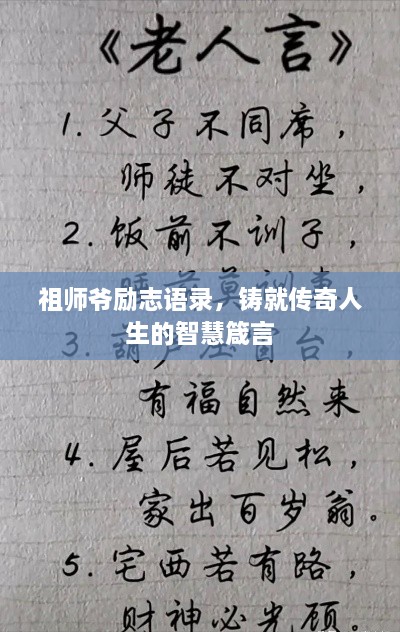 《老人言》
1. 父子不同席，
师徒不对坐，
2. 饭前不训子，
祖师爷励志语录，铸就传奇人
生的智慧箴言
有福自然来
4. 屋后若见松，
家出百岁翁。
5. 宅西若有路，
财神必光顾。